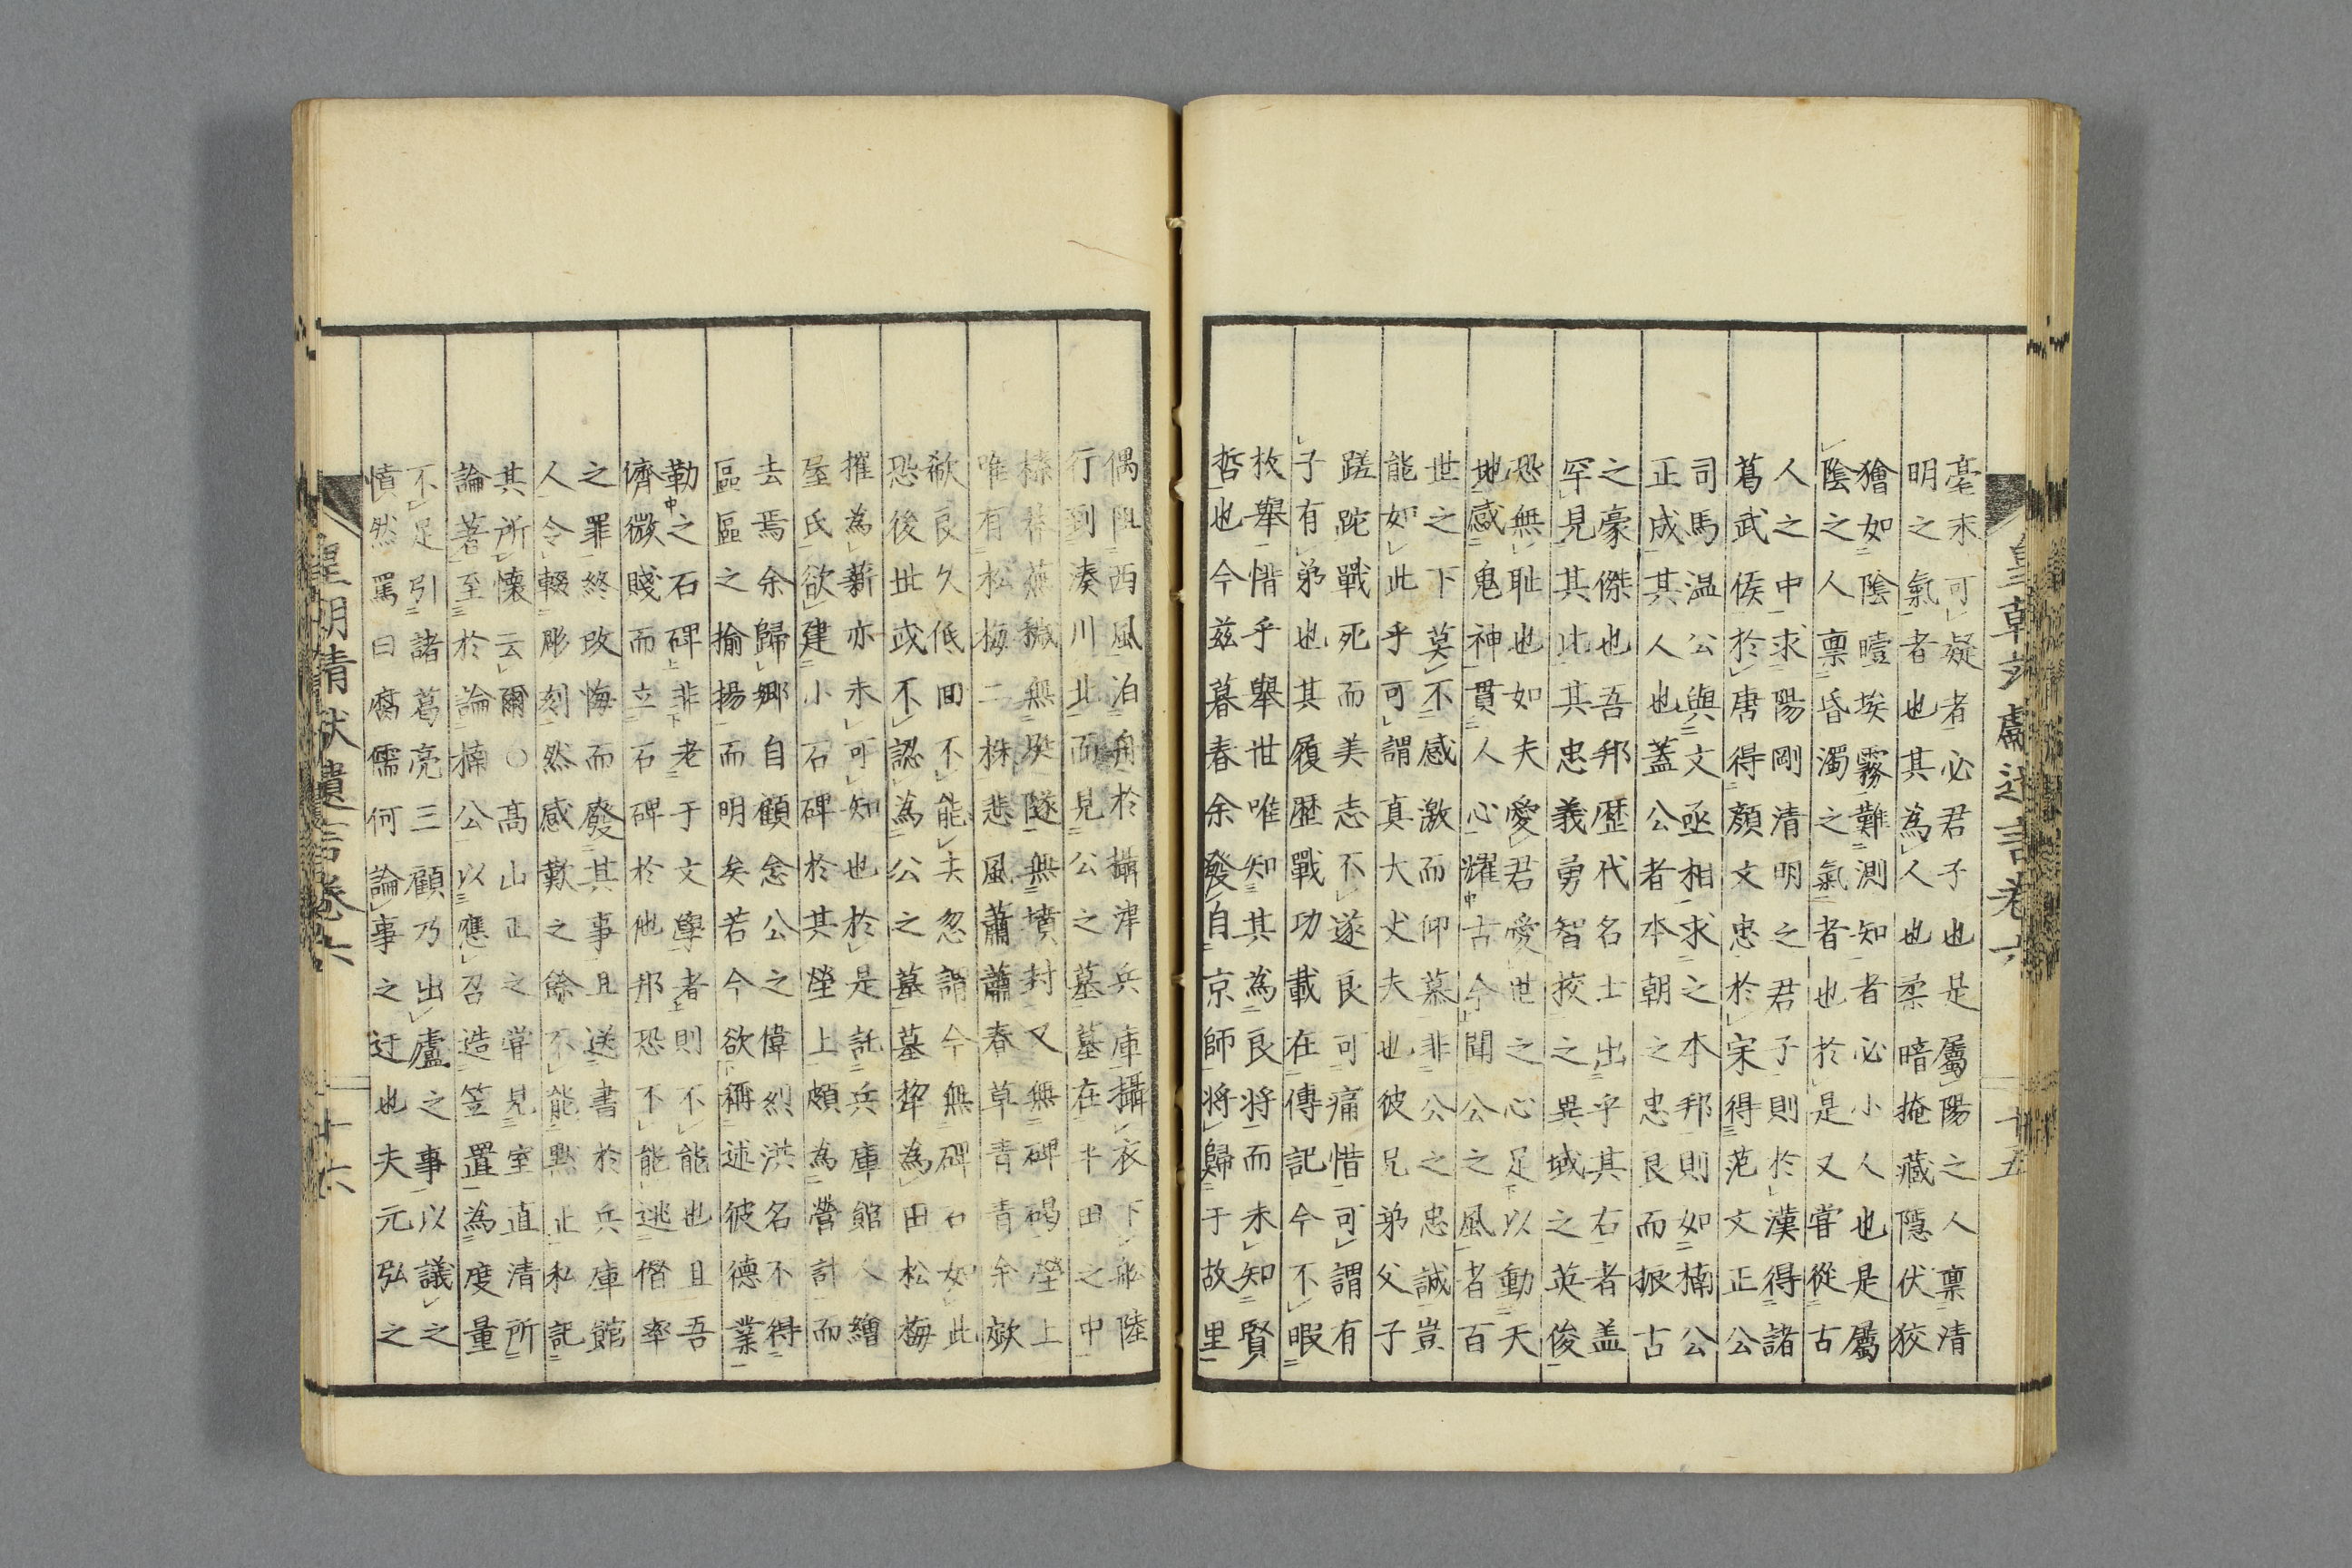 毫末可疑者必君子也是屬陽之人稟清
明之氣者也其為人也柔暗掩藏隱伏狡
獪如陰曀埃霧難測知者必小人也是屬
陰之人稟昏濁之氣者也於是又嘗從古
人之中求陽剛清明之君子則於漢得諸
葛武侯於唐得顏文忠於宋得范文正公
司馬温公與文丞相求之本邦則如楠公
正成其人也蓋公者本朝之忠良而振古
之豪傑也吾邦歷代名士出乎其右者盖
罕見其比其忠義勇智挍之異域之英俊
恐無耻也如夫愛君愛世之心足以動天
地感鬼神貫人心耀古今聞公之風者百
世之下莫不感激而仰慕非公之忠誠豈
能如此乎可謂真大丈夫也彼兄弟父子
蹉跎戰死而美志不遂良可痛惜可謂有
子有弟也其履歷戰功載在傳記今不暇
枚舉惜乎舉世唯知其為良將而未知賢
哲也今茲暮春余發自京師將歸于故里
偶阻西風泊舟於攝津兵庫攝衣下舩陸
行到湊川北而見公之墓墓在半田之中
榛莽蕪穢無埏隧無墳封又無碑碣塋上
唯有松梅二株悲風蕭蕭春草青青余欷
歔良久低回不能夫忽謂今無碑石如此
恐後世或不認為公之墓墓犂為田松梅
摧為薪亦未可知也於是託兵庫館人繪
屋氏欲建小石碑於其塋上頗為營計而
去焉余歸鄉自顧念公之偉烈洪名不得
區區之揄揚而明矣若今欲稱述彼德業
勒之石碑非老于文學者則不能也且吾
儕微賤而立石碑於他邦恐不能逃僭率
之罪終改悔而廢其事且送書於兵庫館
人令輟彫刻然感歎之餘不能黙止私記
其所懷云爾○髙山正之嘗見室直清所
論著至於論楠公以應召造笠置為度量
不足引諸葛亮三顧乃出廬之事以議之
憤然罵曰腐儒何論事之迂也夫元弘之
皇明清伏遺言卷六
十六
十五